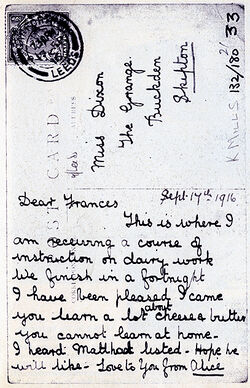 LEEDS
POST CARD
ADDRESS
Miss Dixon
The Grange
Buckden
Skipton
K MILLS
132/180
2/
33
Sept 17th 1916
Dear Frances
This is where I
am receiving a course of
instruction on dairy work
We finish in a fortnight
I have been pleased I came
you learn a lot about cheese & butter
you cannot learn at home-
I heard Matthat listed - Hope he
will like - Love to you from Alice